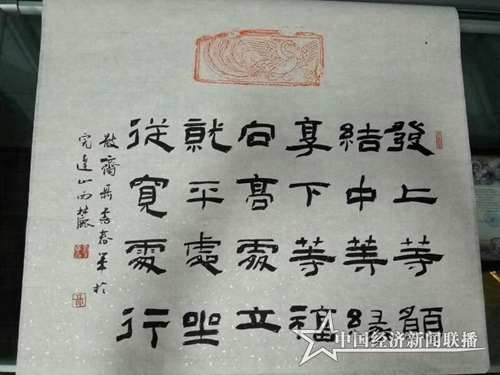 發上等願
結中等緣
享下等福
向高處立
就平處坐
從寬處行
齋 春 於
完達山西麓
中国经济新闻联播